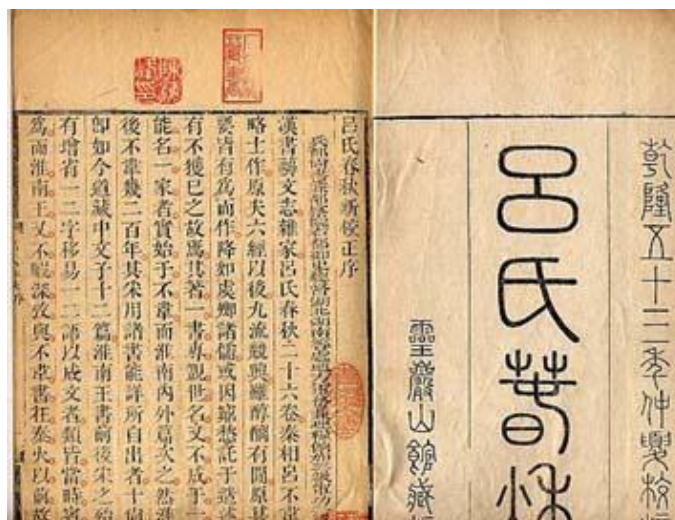 乾隆五十三年仲夏校
呂氏萅秋
靈巖山館藏
呂氏春秋新校正序
漢書藝文志雜家呂氏春秋二十六卷秦相呂不韋
略士作原夫六經以後九流競興雖醇醨有間原其
要皆有爲而作降如虞卿諸儒或因窮愁託于造述
有不獲已之故焉其著一書專覬世名又不成于一
能名一家者實始于不韋而淮南內外篇次之然淮
後不韋幾二百年其采用諸書能詳所自出者十尚
卽如今道藏中文子十二篇淮南王書前後采之殆
有增省一二字移易一二語以成文者類皆當時賓
爲而淮南王又不暇深攷與不韋書在秦火以前故